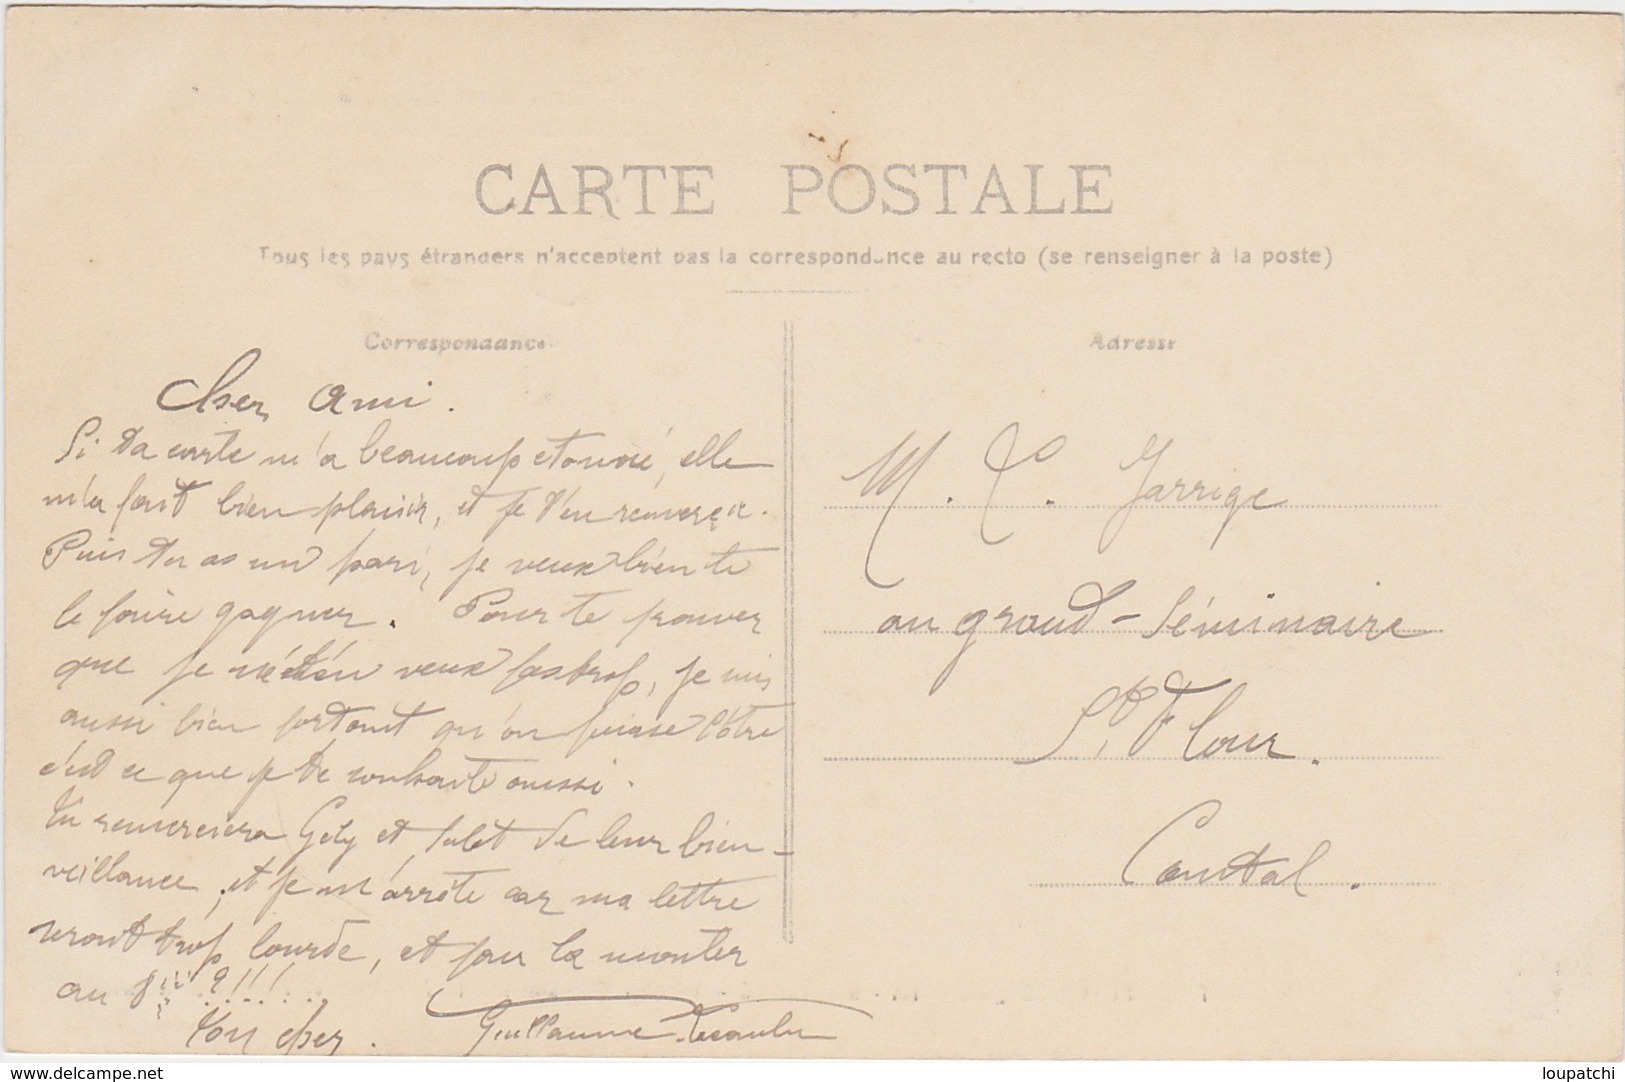 CARTE POSTALE
Tous les pays étrangers n'acceptent pas la correspondance au recto (se renseigner à la poste)
Correspondance
Cher Ami.
Si ta carte m'a beaucoup etonné, elle
m'a fait bien plaisir, et je t'en remercie.
Puis tu as un pari, je veux bien te
le faire gagner. Pour te prouver
que je t'en veux pas trop, je suis
aussi bien portant qu'on puisse l'être
c'est ce que je te souhaite aussi.
Tu remerciera Gely et de leur bien-
veillance, et je m'arrête car ma lettre
serait trop lourde, et pour la monter
au ?!!!...
Ton cher. Guillaume
Adresse
M. C. Jarrige
au grand-Séminaire
St Flour.
Cantal.
www.delcampe.net
loupatchi